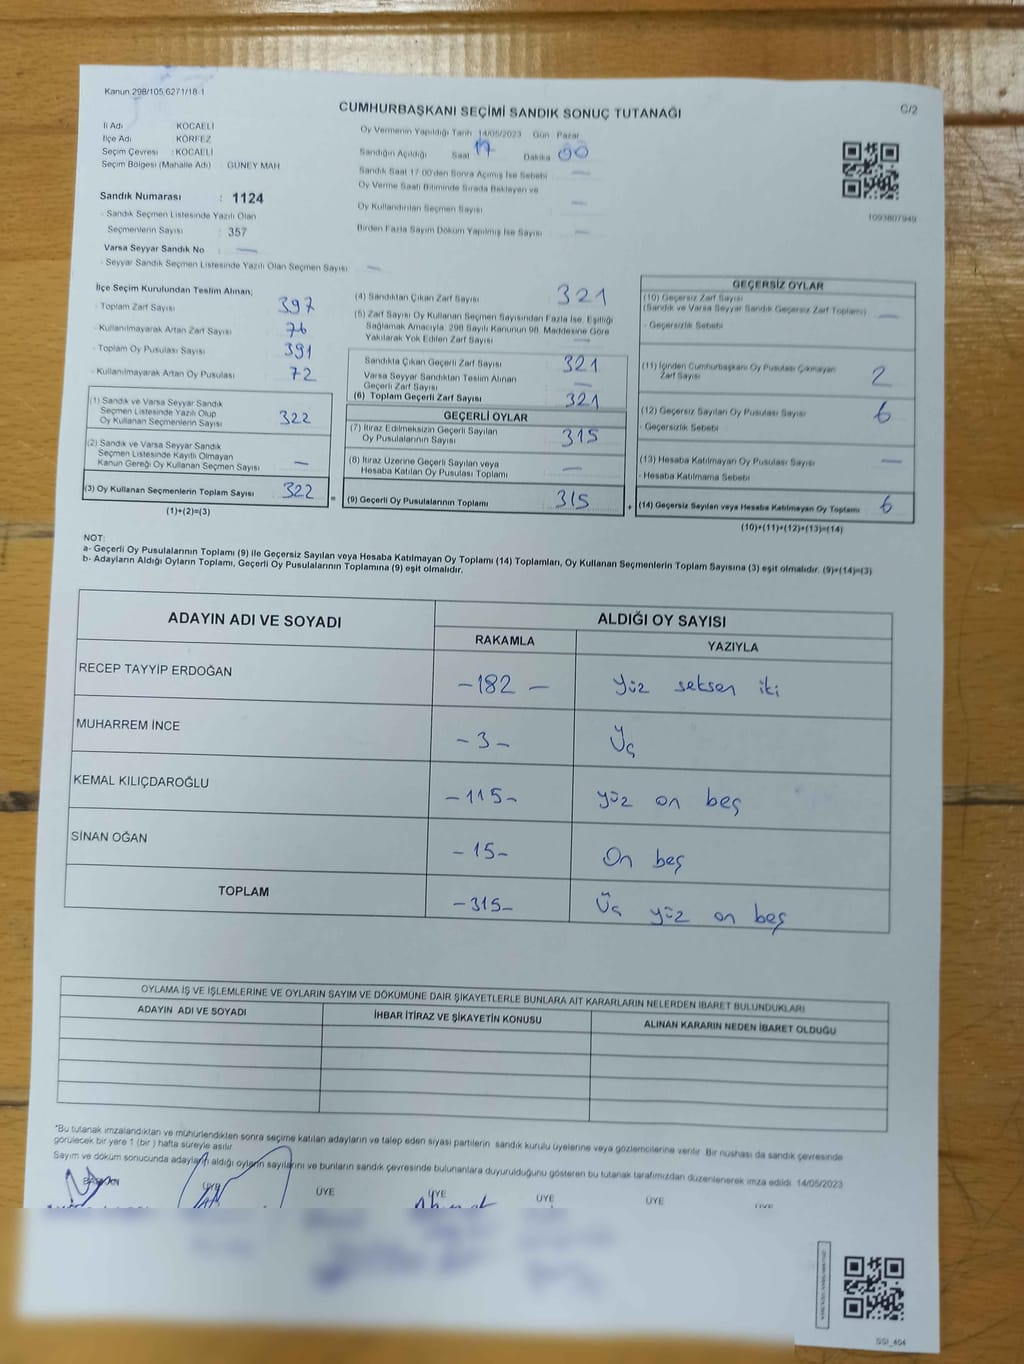 Kanun 298/105,6271/18-1
C/2
CUMHURBAŞKANI SEÇİMİ SANDIK SONUÇ TUTANAĞI
İl Adı KOCAELİ
İlçe Adı KÖRFEZ
Seçim Çevresi : KOCAELİ
Seçim Bölgesi (Mahalle Adı) GÜNEY MAH
Sandık Numarası : 1124
- Sandık Seçmen Listesinde Yazılı Olan
Seçmenlerin Sayısı : 357
Varsa Seyyar Sandık No : —
- Seyyar Sandık Seçmen Listesinde Yazılı Olan Seçmen Sayısı: —
Oy Vermenin Yapıldığı Tarih 14/05/2023 Gün Pazar
Sandığın Açıldığı Saat 17 Dakika 00
Sandık Saat 17.00'den Sonra Açılmış İse Sebebi —
Oy Verme Saati Bitiminde Sırada Bekleyen ve
Oy Kullandırılan Seçmen Sayısı —
Birden Fazla Sayım Döküm Yapılmış İse Sayısı —
1093807949
İlçe Seçim Kurulundan Teslim Alınan;
- Toplam Zarf Sayısı 397
- Kullanılmayarak Artan Zarf Sayısı 76
- Toplam Oy Pusulası Sayısı 391
- Kullanılmayarak Artan Oy Pusulası 72
(1) Sandık ve Varsa Seyyar Sandık
Seçmen Listesinde Yazılı Olup
Oy Kullanan Seçmenlerin Sayısı 322
(2) Sandık ve Varsa Seyyar Sandık
Seçmen Listesinde Kayıtlı Olmayan
Kanun Gereği Oy Kullanan Seçmen Sayısı —
(3) Oy Kullanan Seçmenlerin Toplam Sayısı 322 =
(1)+(2)=(3)
(4) Sandıktan Çıkan Zarf Sayısı 321
(5) Zarf Sayısı Oy Kullanan Seçmen Sayısından Fazla İse, Eşitliği
Sağlamak Amacıyla, 298 Sayılı Kanunun 98. Maddesine Göre
Yakılarak Yok Edilen Zarf Sayısı —
Sandıkta Çıkan Geçerli Zarf Sayısı 321
Varsa Seyyar Sandıktan Teslim Alınan
Geçerli Zarf Sayısı —
(6) Toplam Geçerli Zarf Sayısı 321
GEÇERLİ OYLAR
(7) İtiraz Edilmeksizin Geçerli Sayılan
Oy Pusulalarının Sayısı 315
(8) İtiraz Üzerine Geçerli Sayılan veya
Hesaba Katılan Oy Pusulası Toplamı —
(9) Geçerli Oy Pusulalarının Toplamı 315 +
GEÇERSİZ OYLAR
(10) Geçersiz Zarf Sayısı
(Sandık ve Varsa Seyyar Sandık Geçersiz Zarf Toplamı) —
- Geçersizlik Sebebi
(11) İçinden Cumhurbaşkanı Oy Pusulası Çıkmayan
Zarf Sayısı 2
(12) Geçersiz Sayılan Oy Pusulası Sayısı 6
- Geçersizlik Sebebi
(13) Hesaba Katılmayan Oy Pusulası Sayısı —
- Hesaba Katılmama Sebebi
(14) Geçersiz Sayılan veya Hesaba Katılmayan Oy Toplamı 6
(10)+(11)+(12)+(13)=(14)
NOT:
a- Geçerli Oy Pusulalarının Toplamı (9) ile Geçersiz Sayılan veya Hesaba Katılmayan Oy Toplamı (14) Toplamları, Oy Kullanan Seçmenlerin Toplam Sayısına (3) eşit olmalıdır. (9)+(14)=(3)
b- Adayların Aldığı Oyların Toplamı, Geçerli Oy Pusulalarının Toplamına (9) eşit olmalıdır.
ADAYIN ADI VE SOYADI ALDIĞI OY SAYISI
RAKAMLA YAZIYLA
RECEP TAYYİP ERDOĞAN -182- Yüz seksen iki
MUHARREM İNCE -3- Üç
KEMAL KILIÇDAROĞLU -115- yüz on beş
SİNAN OĞAN -15- On beş
TOPLAM -315- Üç yüz on beş
OYLAMA İŞ VE İŞLEMLERİNE VE OYLARIN SAYIM VE DÖKÜMÜNE DAİR ŞİKAYETLERLE BUNLARA AİT KARARLARIN NELERDEN İBARET BULUNDUKLARI
ADAYIN ADI VE SOYADI İHBAR İTİRAZ VE ŞİKAYETİN KONUSU ALINAN KARARIN NEDEN İBARET OLDUĞU
*Bu tutanak imzalandıktan ve mühürlendikten sonra seçime katılan adayların ve talep eden siyasi partilerin sandık kurulu üyelerine veya gözlemcilerine verilir. Bir nüshası da sandık çevresinde
görülecek bir yere 1 (bir) hafta süreyle asılır.
Sayım ve döküm sonucunda adayların aldığı oyların sayılarını ve bunların sandık çevresinde bulunanlara duyurulduğunu gösteren bu tutanak tarafımızdan düzenlenerek imza edildi. 14/05/2023
BAŞKAN ÜYE ÜYE ÜYE ÜYE ÜYE ÜYE